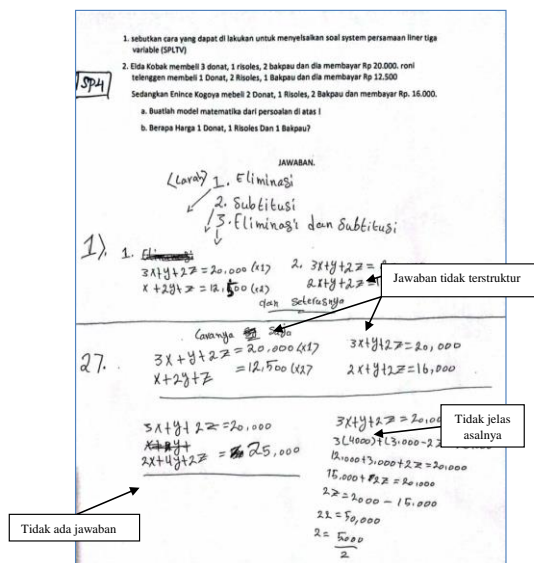 1. sebutkan cara yang dapat di lakukan untuk menyelsaikan soal system persamaan liner tiga
variable (SPLTV)
2. Elda Kobak membeli 3 donat, 1 risoles, 2 bakpau dan dia membayar Rp 20.000. roni
telenggen membeli 1 Donat, 2 Risoles, 1 Bakpau dan dia membayar Rp 12.500
Sedangkan Enince Kogoya mebeli 2 Donat, 1 Risoles, 2 Bakpau dan membayar Rp. 16.000.
a. Buatlah model matematika dari persoalan di atas !
b. Berapa Harga 1 Donat, 1 Risoles Dan 1 Bakpau?
SP4
JAWABAN.
(Carah) 1. Eliminasi
2. Subtitusi
3. Eliminasi dan Subtitusi
1). 1.
3x+y+2z=20,000 (x1)
x+2y+z=12,500 (x2)
2. 3x+y+2z=
2x+y+2z=
dan seterusnya
Jawaban tidak terstruktur
Caranya Saya
27. 3x+y+2z=20,000 (x1)
x+2y+z =12,500 (x2)
3x+y+2z=20,000
2x+y+2z=16,000
3x+y+2z=20,000
2x+4y+2z = 25,000
Tidak ada jawaban
3x+y+2z=20,00
3(4000)+(3.000-2z
12,000+3,000+2z=20,000
15,000+2z=20,000
2z=2000-15.000
2z=50,000
2= 5000
2
Tidak jelas
asalnya